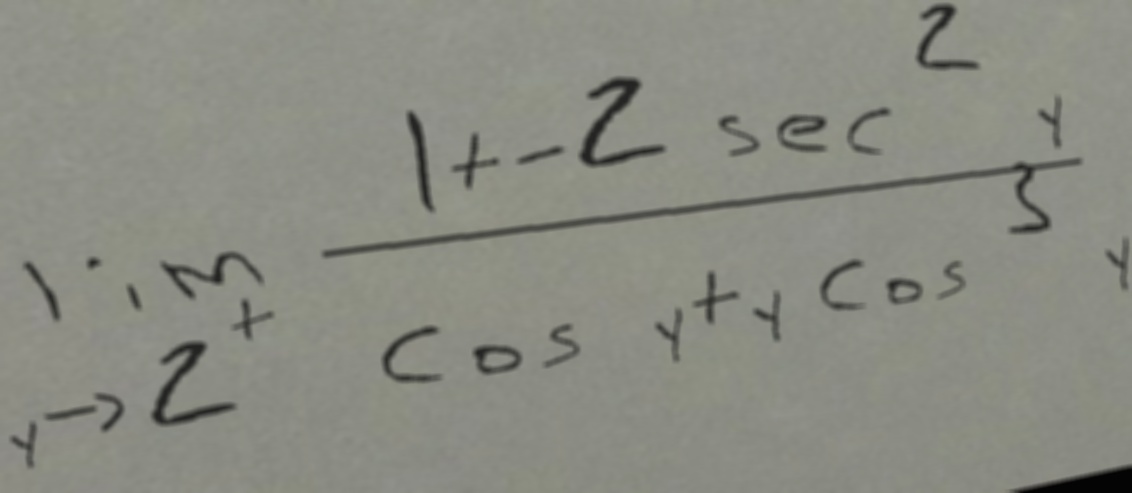 \lim_{y \to 2^+} \frac{1 + -2 \sec^2 y}{\cos y + y \cos^3 y}